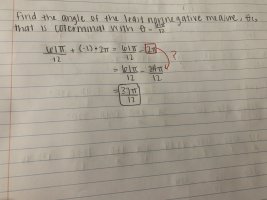 find the angle of the least nonnegative measure, θc
that is coterminal with θ = 61π/12
61π/12 + (-1) • 2π = 61π/12 - 2π ?
= 61π/12 - 24π/12
= 37π/12